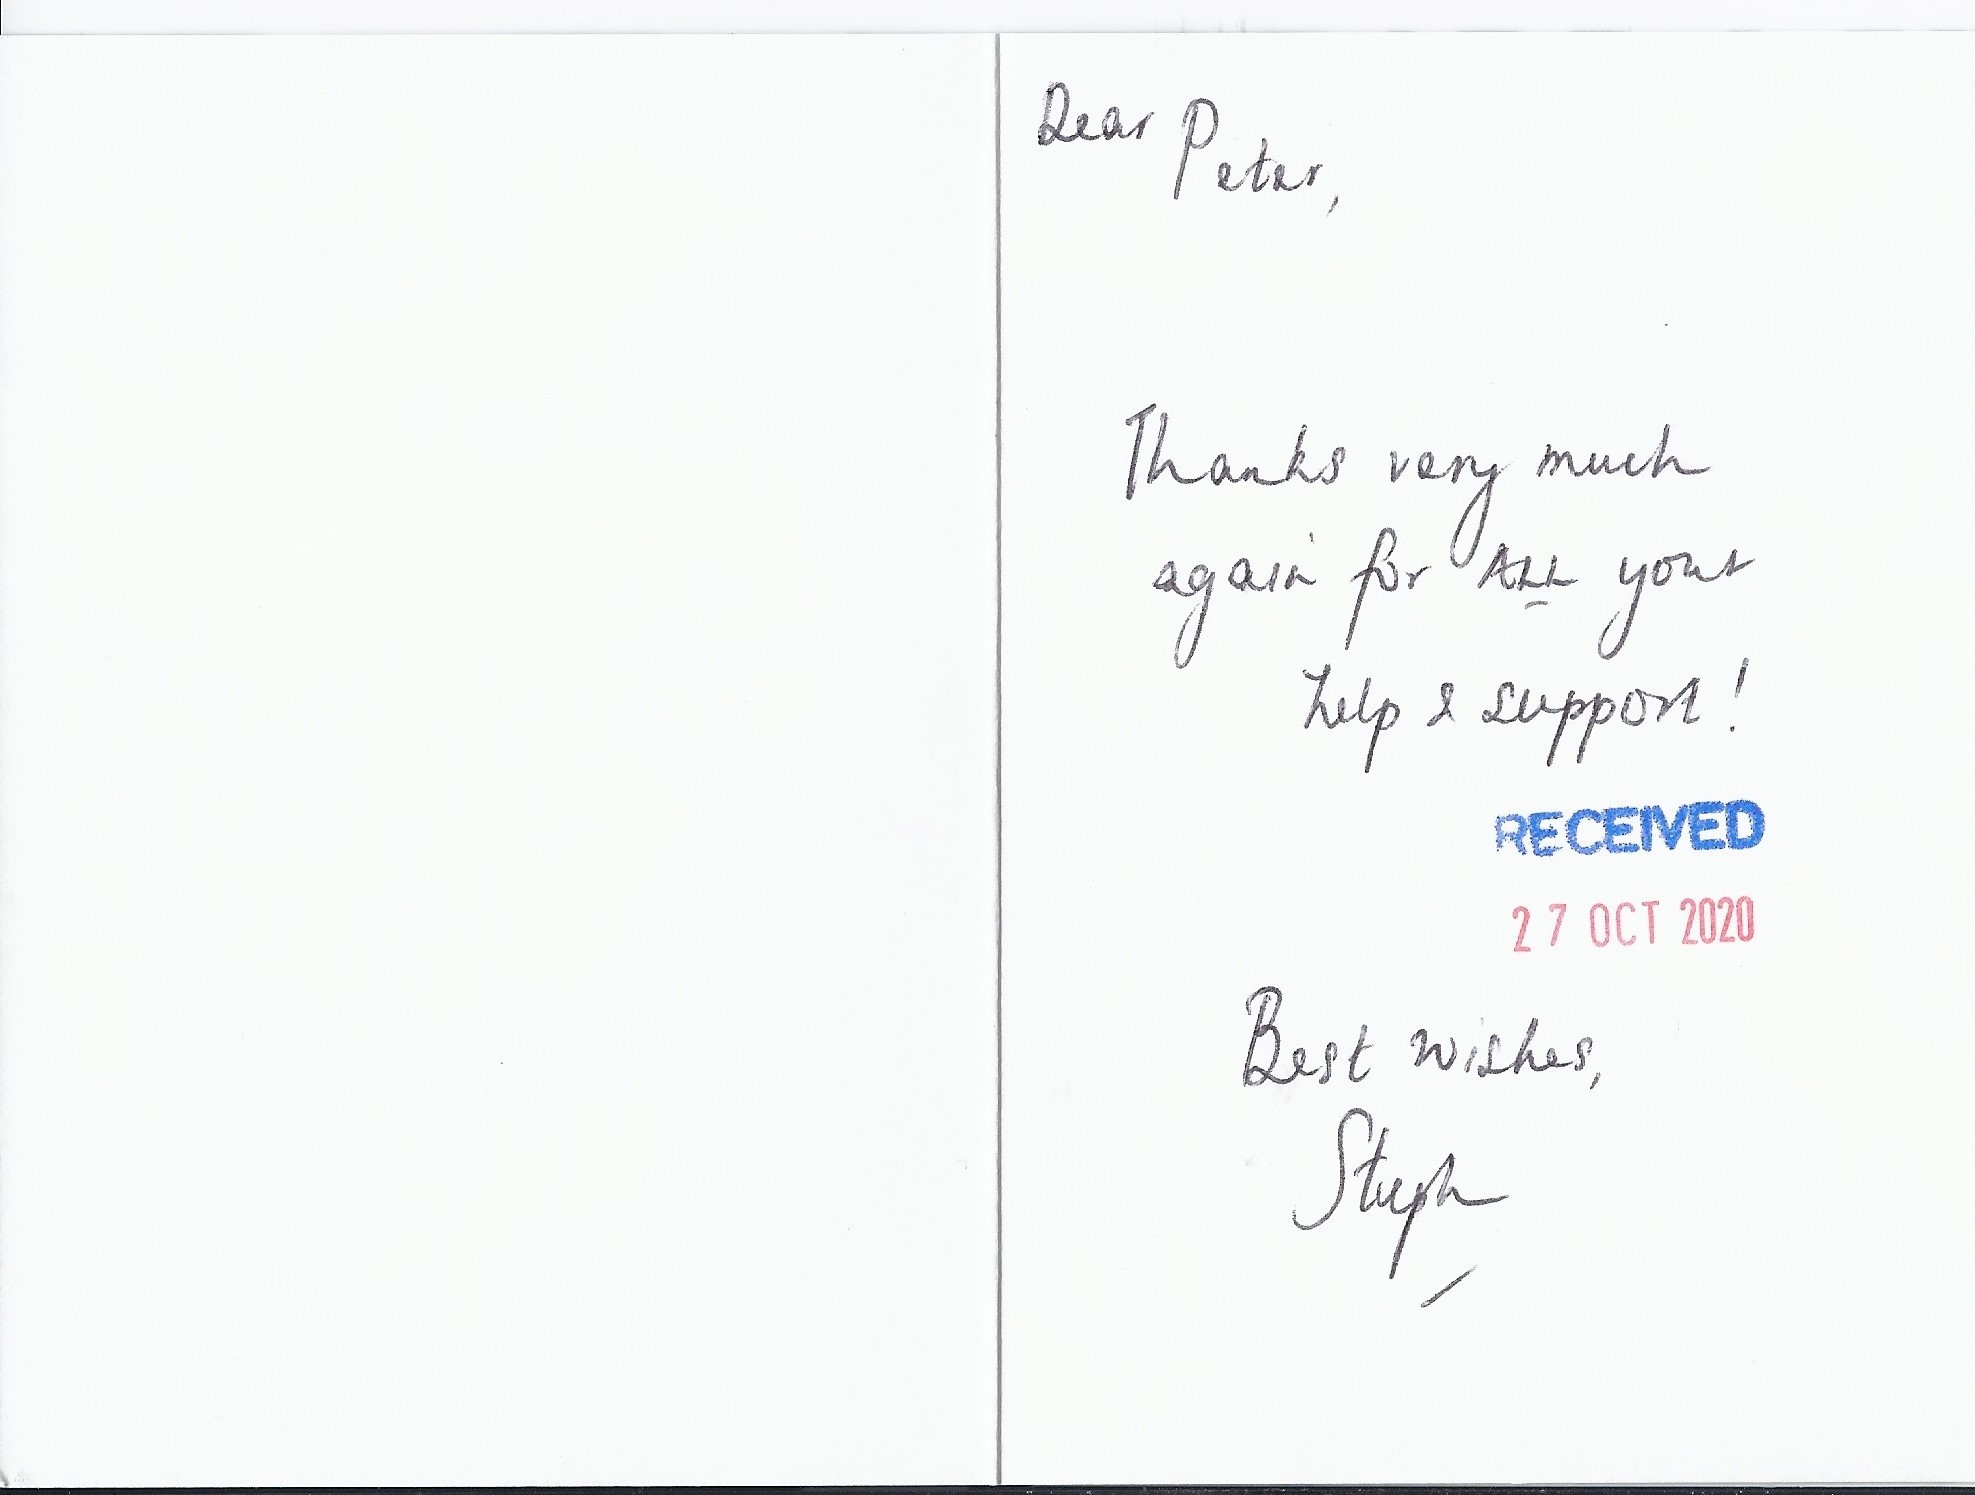 Dear Peter,
Thanks very much
again for ALL your
help & support!
RECEIVED
27 OCT 2020
Best wishes,
Steph